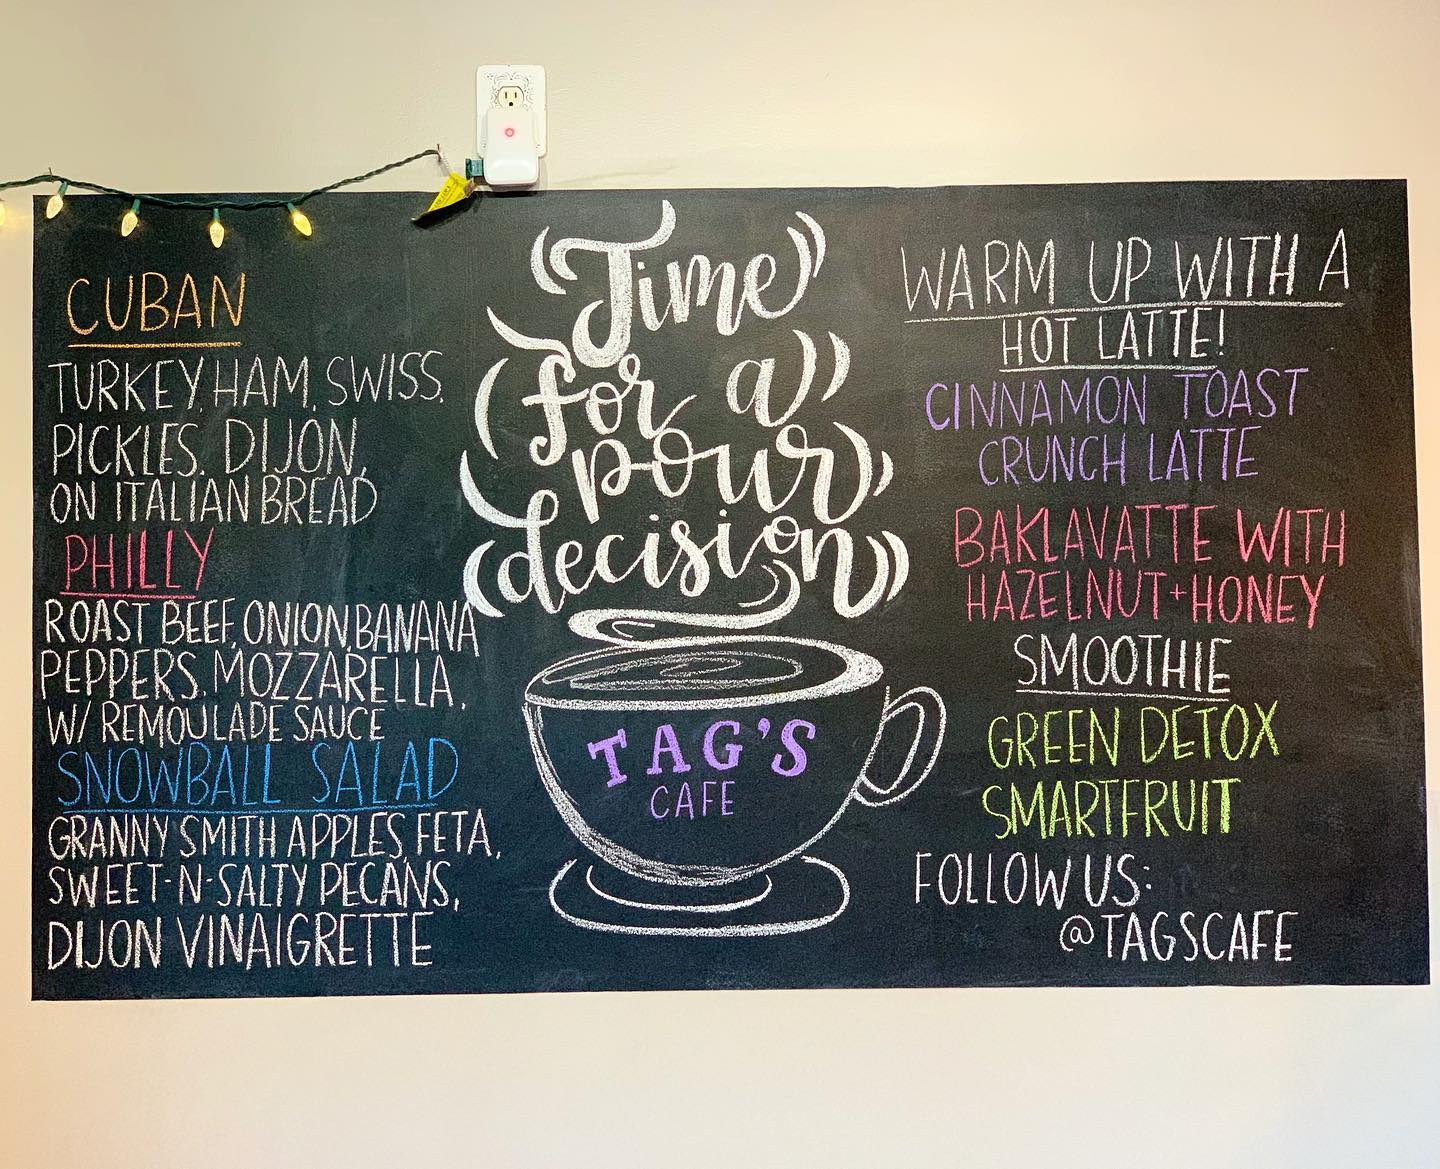 CUBAN
TURKEY, HAM, SWISS,
PICKLES, DIJON,
ON ITALIAN BREAD
PHILLY
ROAST BEEF, ONION, BANANA
PEPPERS, MOZZARELLA,
W/ REMOULADE SAUCE
SNOWBALL SALAD
GRANNY SMITH APPLES, FETA,
SWEET-N-SALTY PECANS,
DIJON VINAIGRETTE
Time
for a
pour
decision
TAG'S
CAFE
WARM UP WITH A
HOT LATTE!
CINNAMON TOAST
CRUNCH LATTE
BAKLAVATTE WITH
HAZELNUT+HONEY
SMOOTHIE
GREEN DETOX
SMARTFRUIT
FOLLOW US:
@TAGSCAFE